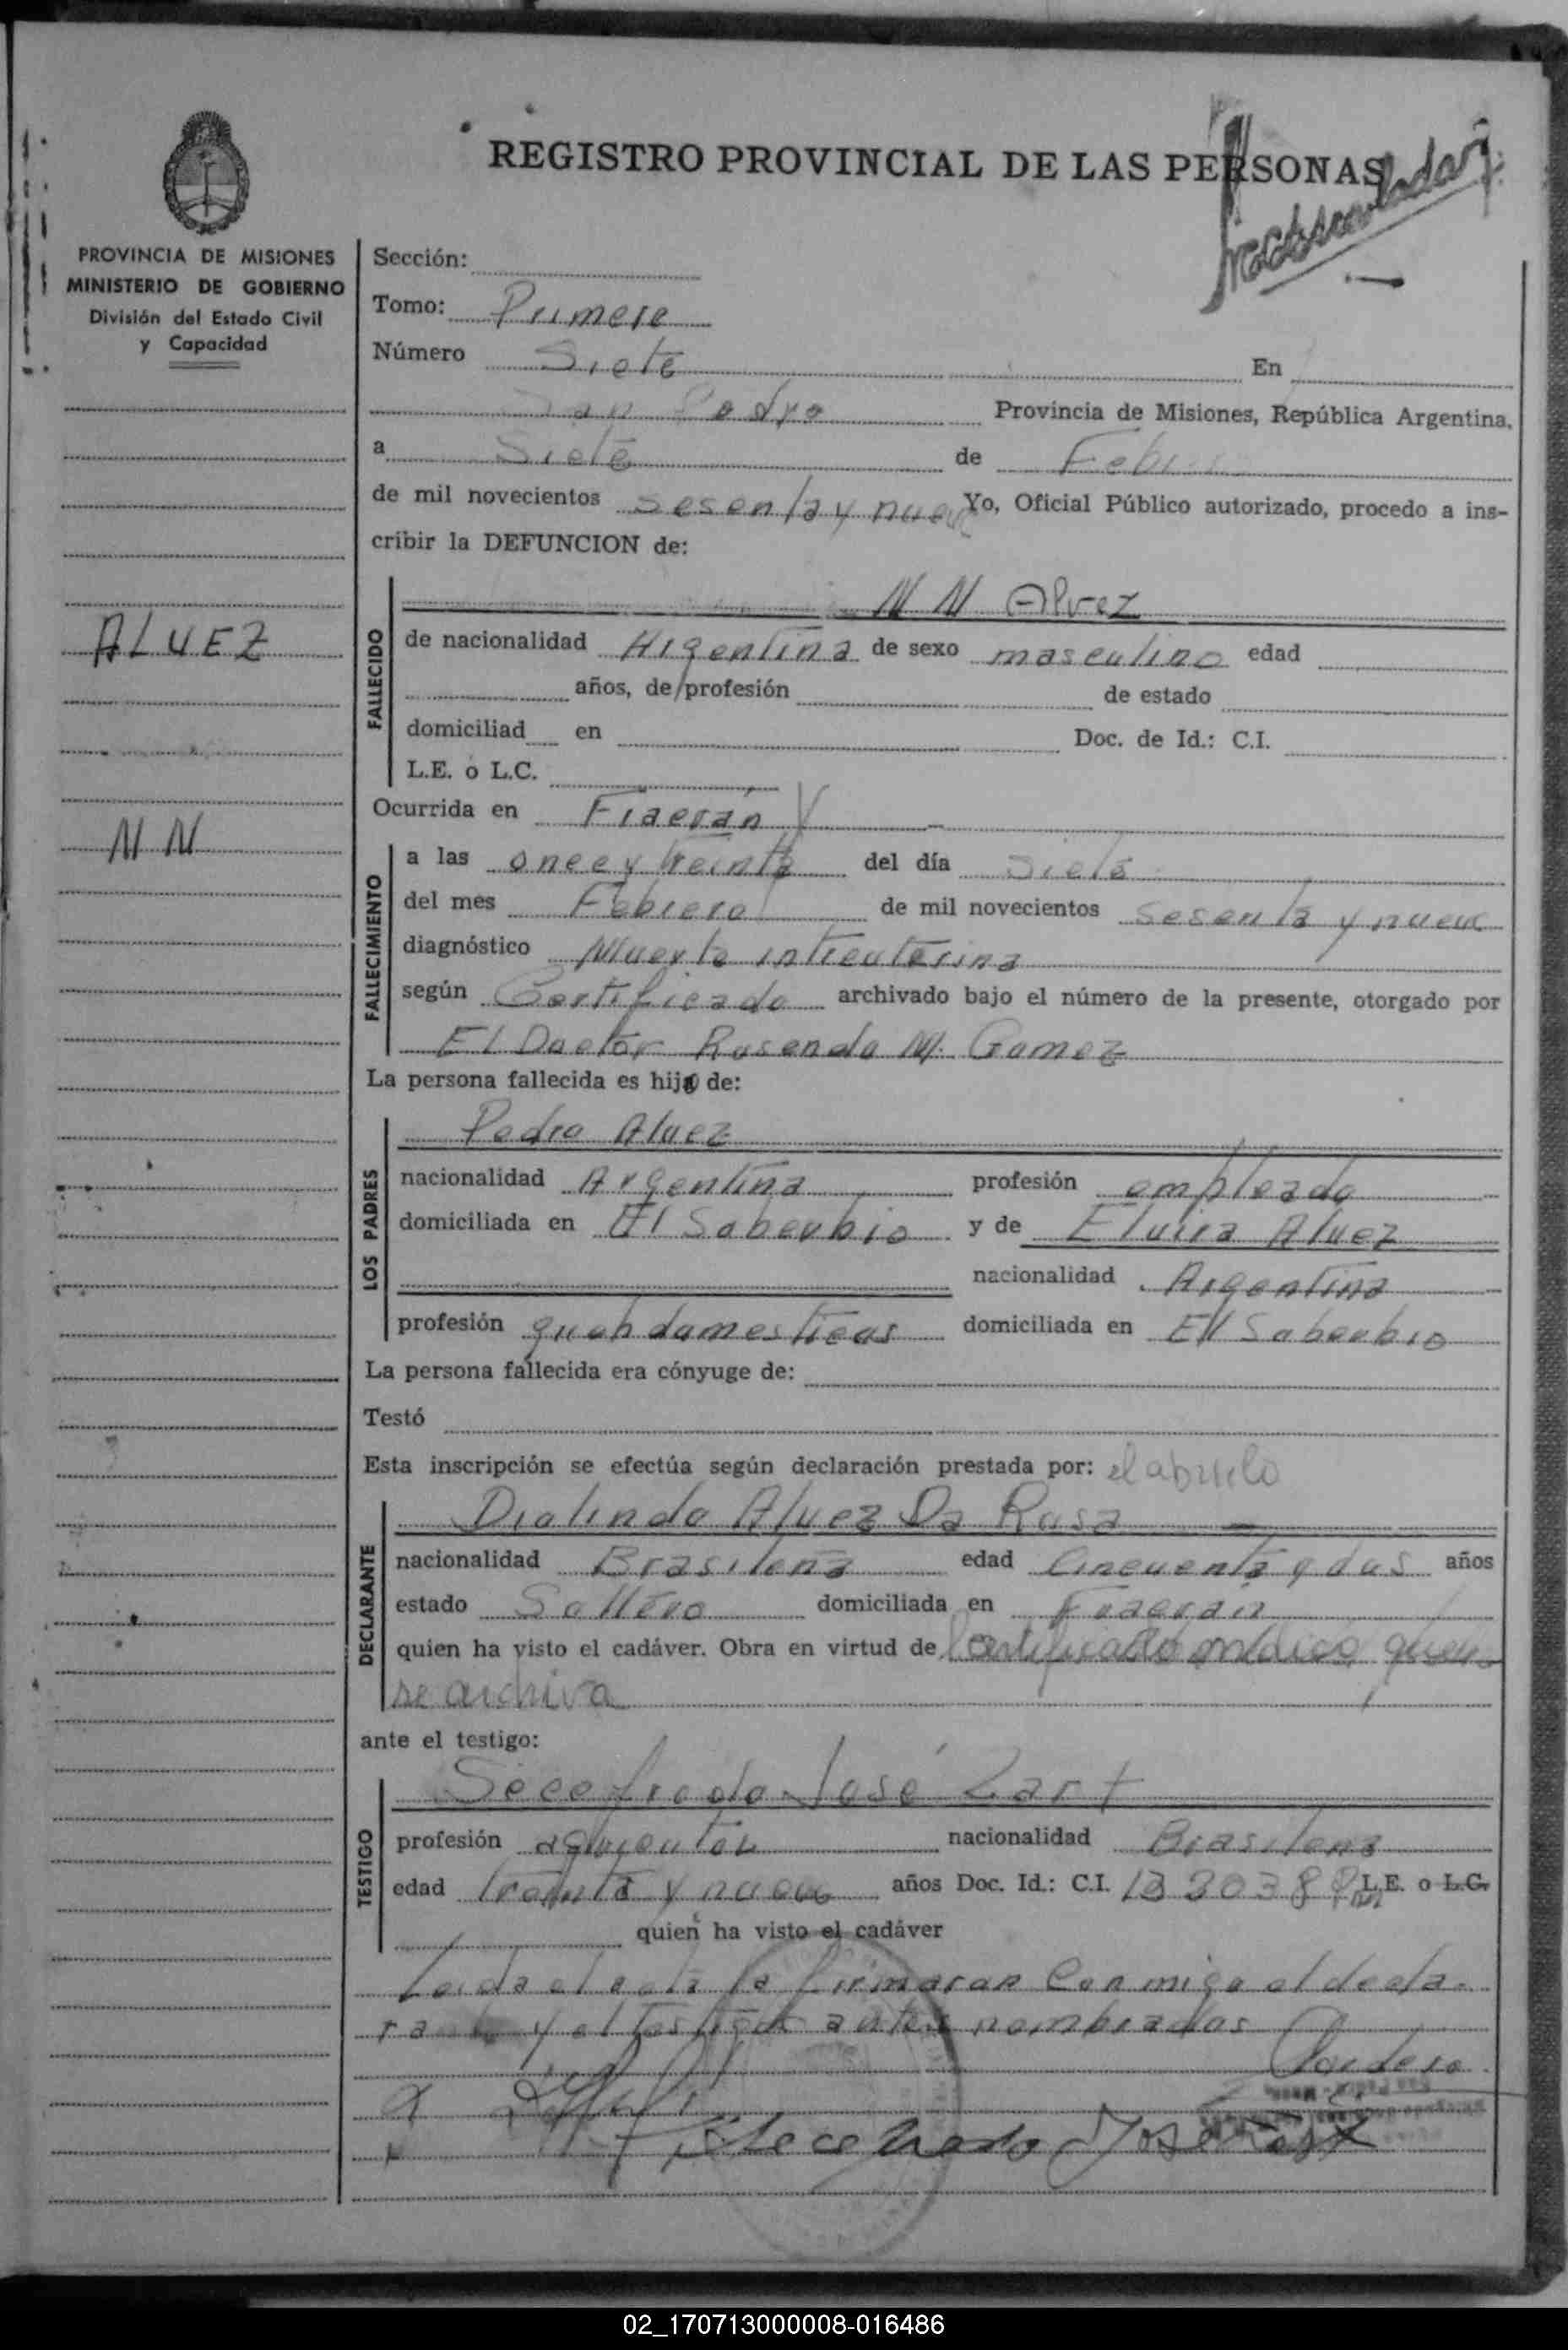 REGISTRO PROVINCIAL DE LAS PERSONAS
PROVINCIA DE MISIONES
MINISTERIO DE GOBIERNO
División del Estado Civil
y Capacidad
Sección:
Tomo: Primero
Número Siete En
San Pedro Provincia de Misiones, República Argentina,
a Siete de Febr
de mil novecientos sesenta y nueve Yo, Oficial Público autorizado, procedo a ins-
cribir la DEFUNCION de:
N N Alvez
ALVEZ
N N
FALLECIDO
de nacionalidad Argentina de sexo masculino edad
años, de profesión de estado
domiciliad en Doc. de Id.: C.I.
L.E. o L.C.
Ocurrida en Fracrán
FALLECIMIENTO
a las once y treinta del día siete
del mes Febrero de mil novecientos sesenta y nueve
diagnóstico Muerte intrauterina
según Certificado archivado bajo el número de la presente, otorgado por
El Doctor Rosendo M. Gomez
La persona fallecida es hijo de:
LOS PADRES
Pedro Alvez
nacionalidad Argentina profesión empleado
domiciliada en El Soberbio y de Elvira Alvez
nacionalidad Argentina
profesión queh domesticos domiciliada en El Soberbio
La persona fallecida era cónyuge de:
Testó
Esta inscripción se efectúa según declaración prestada por: el abuelo
DECLARANTE
Diolindo Alvez Da Rosa
nacionalidad Brasileña edad Cincuenta y dos años
estado Soltero domiciliada en Fracran
quien ha visto el cadáver. Obra en virtud de Certificado médico que
se archiva
ante el testigo:
TESTIGO
José Zart
profesión agricultor nacionalidad Brasilena
edad treinta y nueve años Doc. Id.: C.I. L.E. o L.C.
quien ha visto el cadáver
Leida el acta la firmaran Conmigo el decla-
rante y el testigo antes nombrados
José Zart
02_170713000008-016486